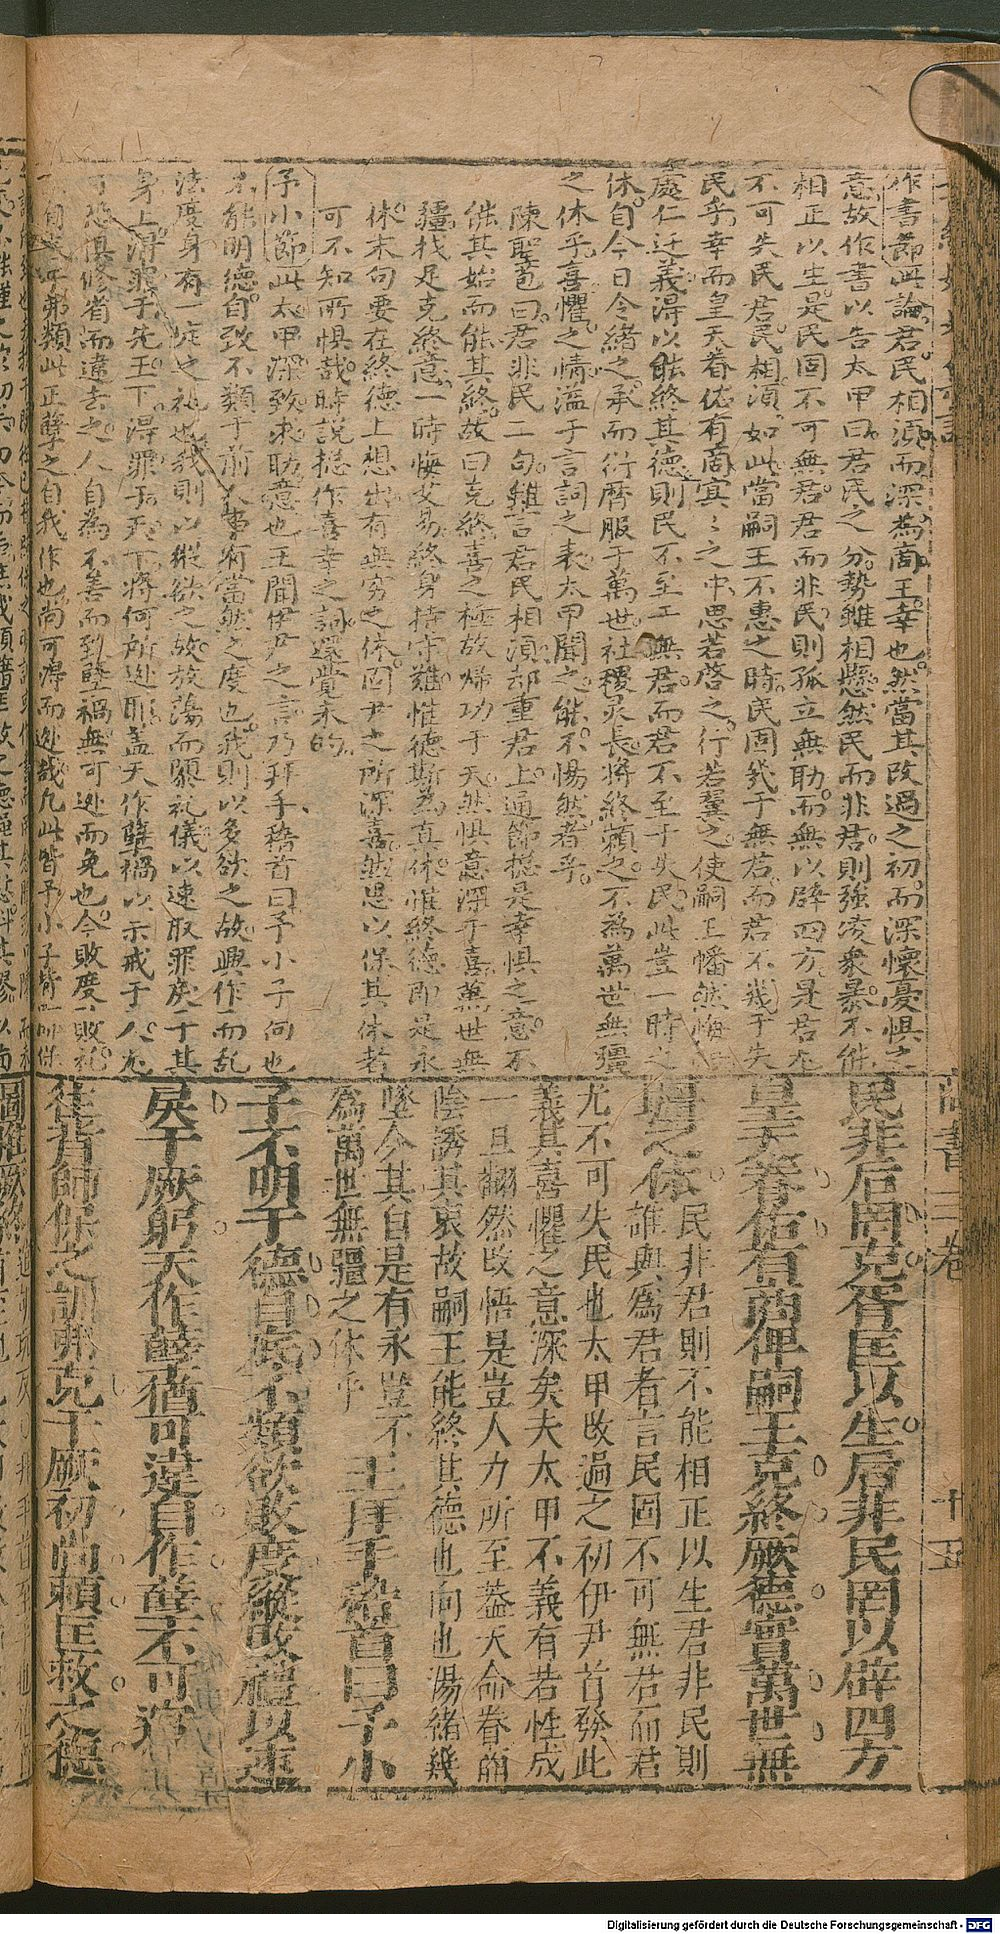 尚書 三卷
十五
作書節此論君民相須而深為商王幸也然當其改過之初而深懷憂惧之
意故作書以告太甲曰君民之分勢雖相懸然民而非君則強凌衆暴不能
相正以生是民固不可無君君而非民則孤立無助而無以辟四方是君亦
不可失民君民相須如此當嗣王不惠之時民固幾于無君而君不幾于失
民乎幸而皇天眷佑有商冥冥之中思若啓之行若翼之使嗣王幡然悔
處仁迁義得以能終其德則民不至于無君而君不至于失民此豈一時之
休自今日令緒之承而衍曆服于萬世社稷灵長將終賴之不為萬世無疆
之休乎喜懼之情溢于言詞之表太甲聞之能不惕然者乎
陳聖苞曰君非民二句雖言君民相須却重君上通節摠是幸惧之意不
能其始而能其終故曰克終喜之極故歸功于天然惧意深于喜萬世無
疆找足克終意一時悔艾易終身持守難惟德斯為真休惟終德即是永
休末句要在終德上想出有無穷之休固尹之所深喜然思以保其休者
可不知所惧哉時說摠作喜幸之詞還覺未的
予小節此太甲深致求助意也王聞伊尹之言乃拜手稽首曰予小子向也
不能明德自致不類于前人事有當然之度也我則以多欲之故興作而乱
法度身有一定之礼也我則以縱欲之故放荡而隳礼儀以速取罪戾于其
身上得罪于先王下得罪于天下將何所逃耶盖天作孽禍以示戒于人尤
可恐惧修省而違去之人自為不善而致孽禍無可逃而免也今敗度敗礼
自底于弗類此正孽之自我作也尚可得而逃哉凡此皆予小子昔
民非后罔克胥匡以生后非民罔以辟四方
皇天眷佑有商俾嗣王克終厥德實萬世無
疆之休 民非君則不能相正以生君非民則
誰與爲君者言民固不可無君而君
尤不可失民也太甲改過之初伊尹首發此
義其喜懼之意深矣夫太甲不義有若性成
一旦翻然改悟是豈人力所至葢天命眷商
陰誘其衷故嗣王能終其德也向也湯緒幾
墜今其自是有永豈不
為萬世無疆之休乎 王拜手稽首曰予小
子不明于德自底不類欲敗度縱敗禮以速
戾于厥躬天作孽猶可違自作孽不可逭
往背師保之訓弗克于厥初尚賴匡救之德
Digitalisierung gefördert durch die Deutsche Forschungsgemeinschaft - DFG